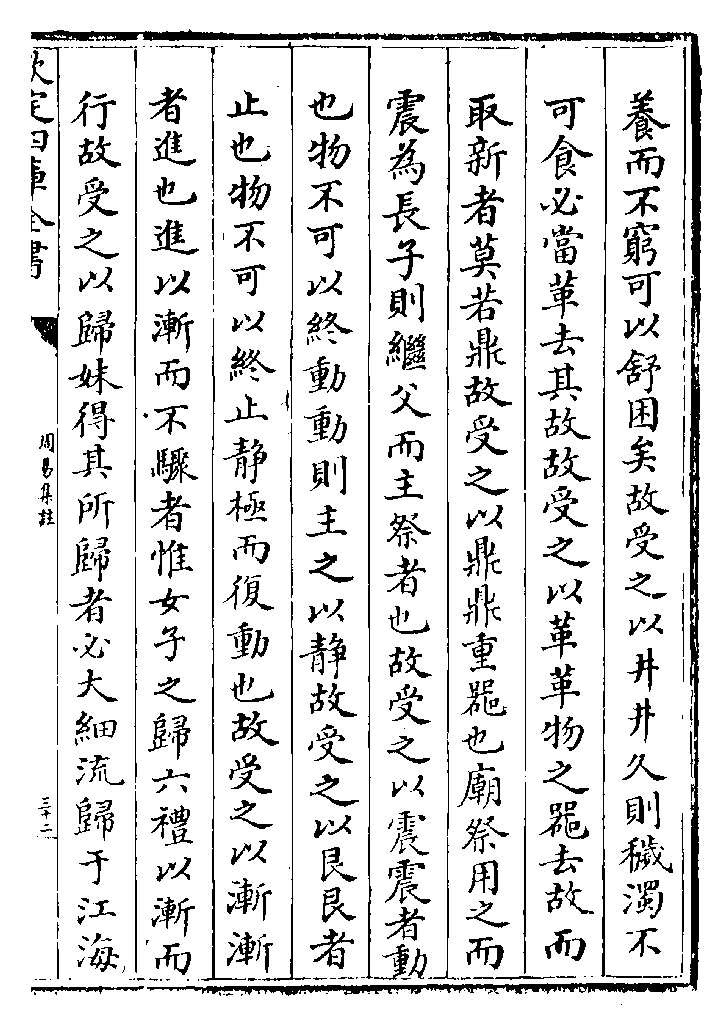 養而不窮可以舒困矣故受之以井井久則穢濁不
可食必當革去其故故受之以革革物之器去故而
取新者莫若鼎故受之以鼎鼎重器也廟祭用之而
震為長子則繼父而主祭者也故受之以震震者動
也物不可以終動動則主之以静故受之以艮艮者
止也物不可以終止静極而復動也故受之以漸漸
者進也進以漸而不驟者惟女子之歸六禮以漸而
行故受之以歸妹得其所歸者必大細流歸于江海
欽定四庫全書
周易集註
三十二